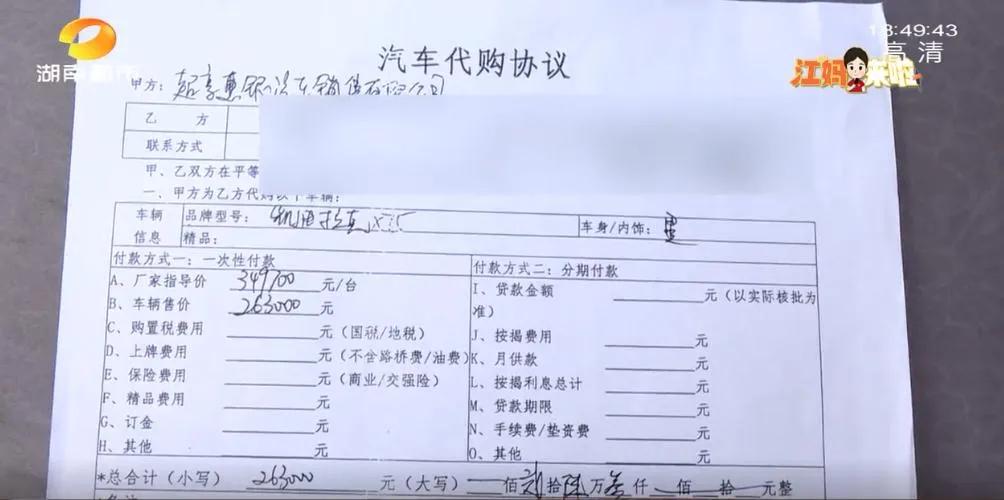 18:49:43
高清
湖南都市
江妈来啦
汽车代购协议
甲方：超享惠民汽车销售有限公司
乙 方
联系方式
甲、乙双方在平等
一、甲方为乙方代购以下车辆：
车辆 品牌型号： 车身/内饰：黑
信息 精品：
付款方式一：一次性付款 付款方式二：分期付款
A、厂家指导价 349700 元/台 I、贷款金额 元（以实际核批为
B、车辆售价 263000 元 准）
C、购置税费用 元（国税/地税） J、按揭费用 元
D、上牌费用 元（不含路桥费/油费） K、月供款 元
E、保险费用 元（商业/交强险） L、按揭利息总计 元
F、精品费用 元 M、贷款期限 元
G、订金 元 N、手续费/垫资费 元
H、其他 元 O、其他 元
*总合计（小写） 263000 元（大写） 佰贰拾陆万叁仟 佰 拾 元整